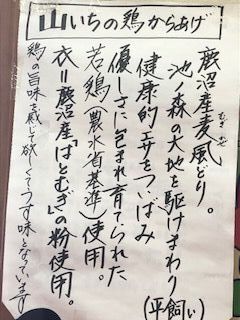 山いちの鶏からあげ
鹿沼産麦風どり。
むぎ かぜ
池ノ森の大地を駆けまわり
(平飼い)
健康的エサをついばみ
優しさに包まれ育てられた
若鶏(農水省基準)使用。
衣=鹿沼産「はとむぎ」の粉使用。
鶏の旨味を感じて欲しくてうす味となっています